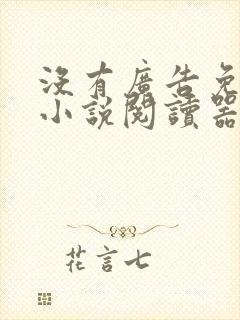 沒有廣告免
小說閱讀器
花言七